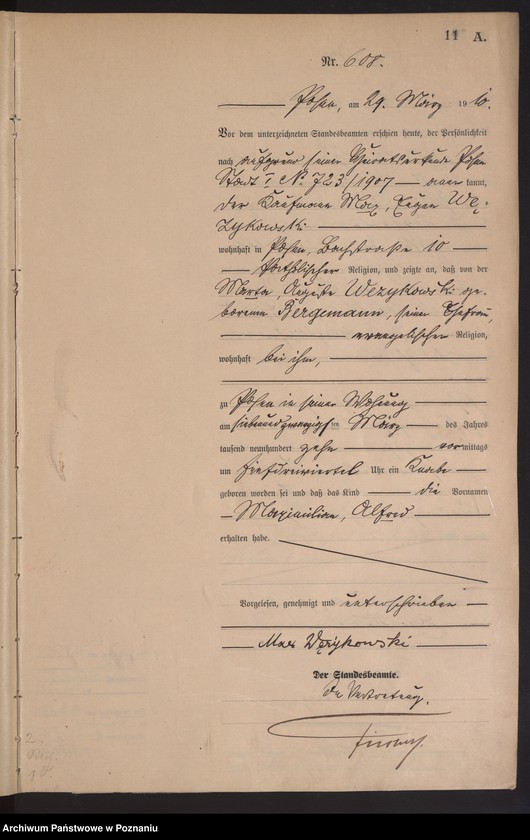 11 A.
Nr. 608.
Posen, am 29. März 1910.
Vor dem unterzeichneten Standesbeamten erschien heute, der Persönlichkeit
nach auf grund seiner Heiratsurkunde Posen
Stadt I N. 723/1907 — aner kannt,
der Kaufmann Max, Eugen We-
zykowski
wohnhaft in Posen, Bachstraße 10
katholischer Religion, und zeigte an, daß von der
Marta, Auguste Wezykowski ge-
borenen Bergemann, seiner Ehefrau,
evangelischer Religion,
wohnhaft bei ihm,
zu Posen in seiner Wohnung
am siebenundzwanzigsten März des Jahres
tausend neunhundert zehn vormittags
um Uhr ein Knabe
geboren worden sei und daß das Kind die Vornamen
Maximilian, Alfred
erhalten habe.
Vorgelesen, genehmigt und unterschrieben
Max Węzykowski
Der Standesbeamte.
In Vertretung.
Archiwum Państwowe w Poznaniu